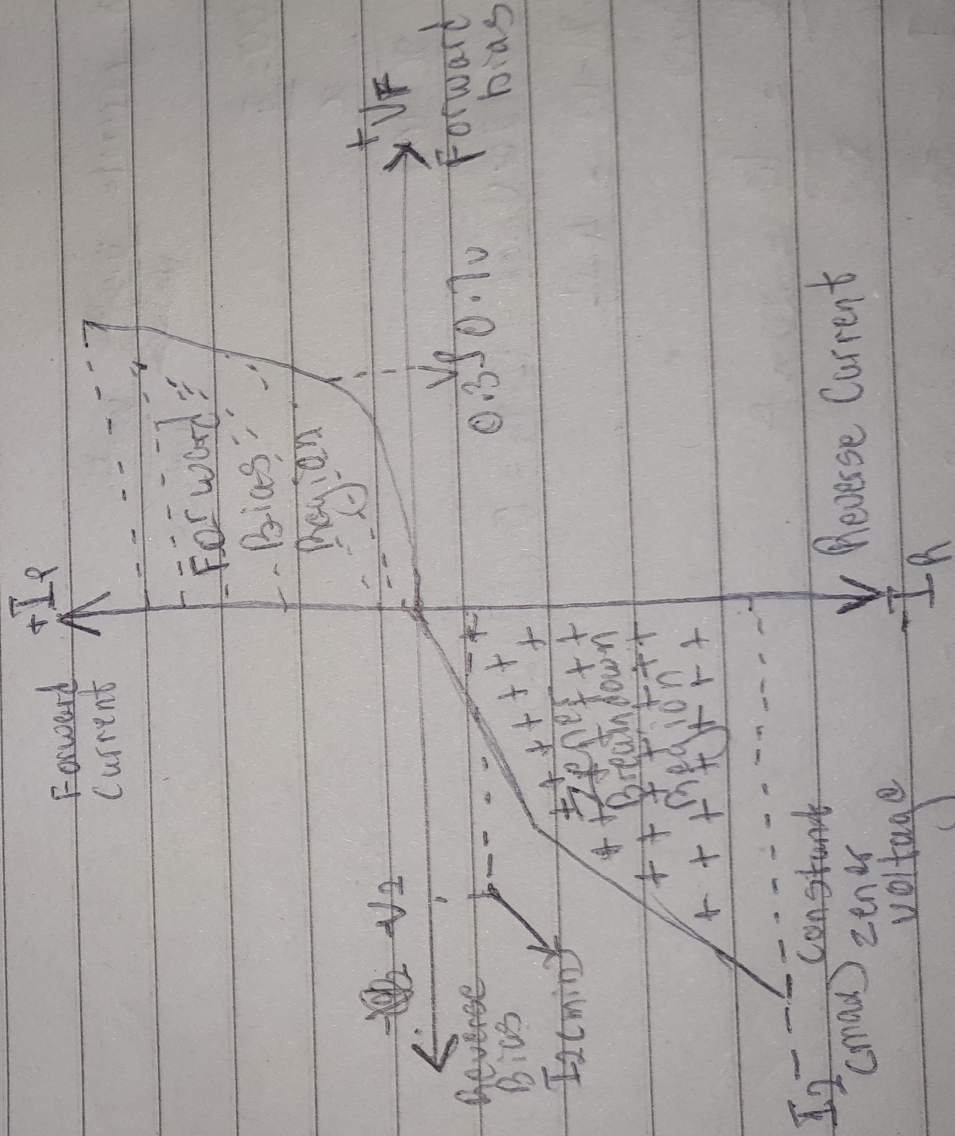 +IF
Forward
Current
Forward
Bias
Region
-VZ
+VF
Forward
bias
Reverse
Bias
IZ(min)
0.3 0.7v
Zener
Breakdown
Region
IZ
(max)
Constant
zener
voltage
Reverse Current
-IR